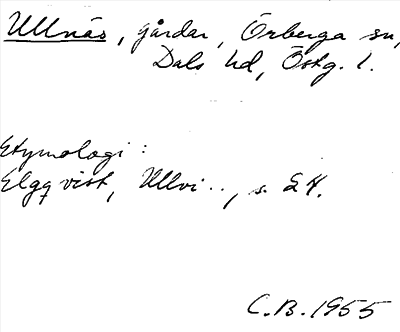 Ullnäs, gårdar, Örberga sn,
Dals hd, Östg. l.
Etymologi:
Elgqvist, Ullvi.., s.
C.B. 1955